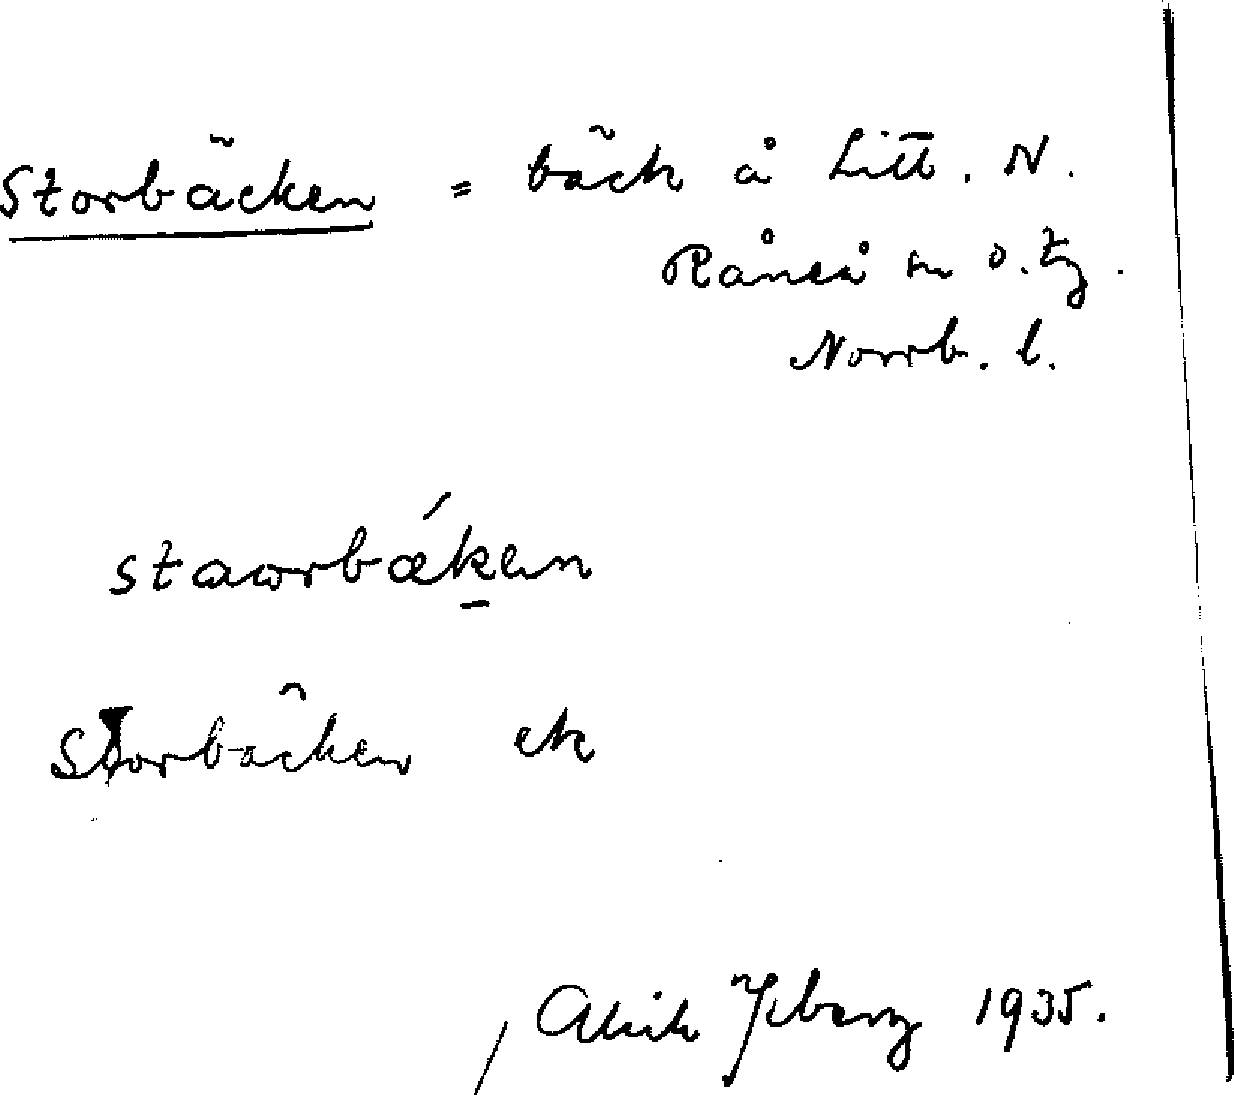 Storbäcken = bäck å Litt. N.
Råneå sn o. tg.
Norrb. l.
staorbǽken
Storbäcken ek
Alrik Ysberg 1935.